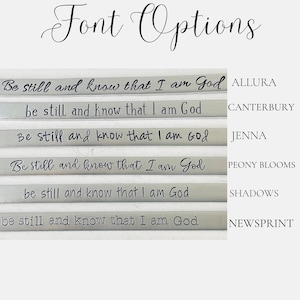 Font Options
Be still and know that I am God ALLURA
be still and know that I am God CANTERBURY
be still and know that I am God JENNA
Be still and know that I am God PEONY BLOOMS
be still and know that I am God SHADOWS
be still and know that I am God NEWSPRINT